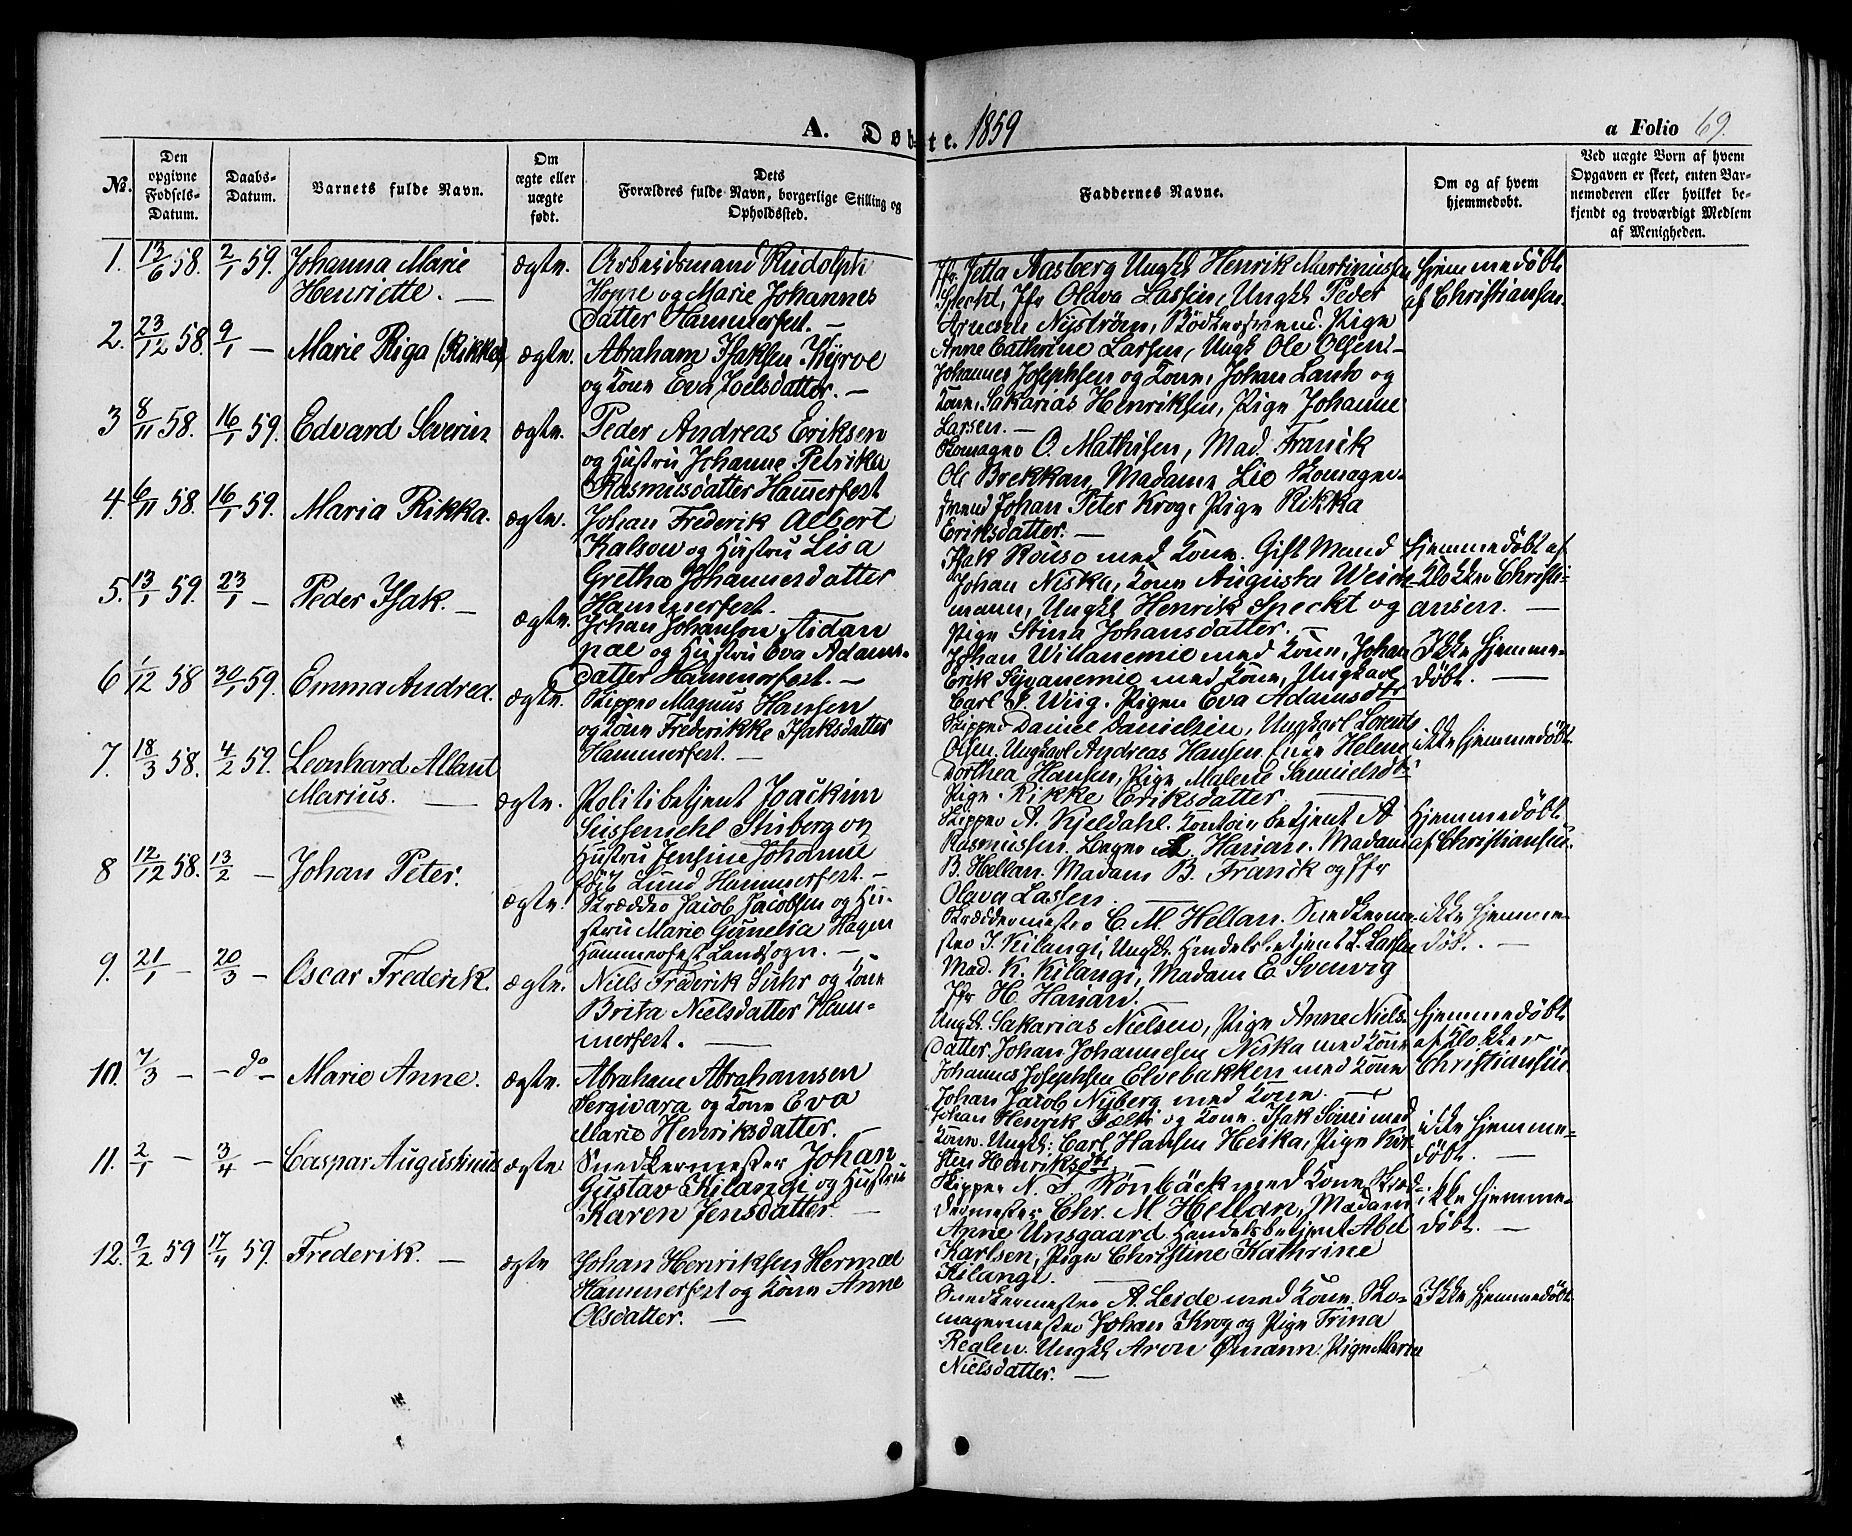 A. Døbte. 1859
a Folio 69.
No.
Den opgivne Fødsels-Datum.
Daabs-Datum.
Barnets fulde Navn.
Om ægte eller uægte født.
Dets Forældres fulde Navn, borgerlige Stilling og Opholdssted.
Faddernes Navne.
Om og af hvem hjemmedøbt.
Ved uægte Børn af hvem Opgaven er skeet, enten Barnemoderen eller hvilket bekjendt og troværdigt Medlem af Menigheden.
1. 13/6 58. 2/1 59. Johanna Marie
Henriette. —
ægte.
Arbeidsmand Rudolph
Hoppe og Marie Johannes
datter Hammerfest. —
Jfr. Jetta Aasberg Ungk. Henrik Martinussen
Specht, Jfr Olava Lassen, Ungk. Peder
Arnesen Nystrøm, Bødkersvend. Pige
Hjemmedøbt
af Christiansen.
2. 23/12 58. 9/1 — Marie Riga (Rikka)
ægte.
Abraham Isaksen Kyrve
og Kone Eva Joelsdatter. —
Anne Cathrine Larsen, Ungk Ole Olsen. —
Johannes Josephsen og Kone, Johan Lanto og
Kone, Sakarias Henriksen, Pige Johanne
Larsen. —
3 8/11 58. 16/1 59. Edvard Severin
ægte.
Peder Andreas Eriksen
og Hustru Johanne Petrika
Rasmusdatter Hammerfest
Skomager O. Mathisen, Mad. Franck
Ole Brekkan, Madame Lie Skomager-
svend Johan Peter Krog, Pige Rikka
Eriksdatter. —
4. 6/11 58. 16/1 59. Maria Rikka.
ægte.
Johan Frederik Albert
Kalson og Hustru Lisa
Gretha Johannesdatter
Hammerfest.
Isak Rouso med Kone. Gift Mand
Johan Niska, Kone Augusta Weid-
mann, Ungk. Henrik Speckt og
Pige Stina Johansdatter. —
Hjemmedøbt af
Klokker Christi-
ansen. —
5. 13/1 59. 23/1 — Peder Isak. —
ægte.
Johan Johanson Aidan
pæe og Hustru Eva Adams-
datter Hammerfest. —
Johan Willanemie med Kone, Johan
Erik Syvanemie med Kone, Ungkarl
Carl P. Wiig. Pigen Eva Adamsdtr
Ikke hjemme-
døbt. —
6 1/12 58 30/1 59. Emma Andrea.
ægte.
Skipper Magnus Hansen
og Kone Frederikke Isaksdatter
Hammerfest. —
Skipper Daniel Danielsen, Ungkarl Lorents
Olsen. Ungkarl Andreas Hansen, Enke Helene
Dorthea Hansen, Pige Malene Samuelsdtr
Pige. Rikke Eriksdatter —
ikke hjemmedøbt
7. 18/3 58. 4/2 59. Leonhard Allant
Marius. —
ægte.
Politibetjent Joackim
Stiberg og
Hustru Jensine Johanne
Lund Hammerfest. —
Skipper A. Kjeldahl. Kontoirbetjent A
Rasmussen. Læge A. Harian. Madam
B. Hellan. Madam B. Franck og Jfr
Olava Lassen. —
Hjemmedøbt
af Christiansen.
8 12/12 58. 13/2 — Johan Peter.
ægte.
Skrædder Jacob Jacobsen og Hu-
stru Marie Gunelia Hagen
Hammerfest Landsogn. —
Skræddermester C. M. Hellan. Snedkerme-
ster J. Kilangi, Ungk. Handelsbetjent L. Lassen
Mad. K. Kilangi, Madam E. Svenvig
Jfr H. Harian.
ikke hjemme-
døbt. —
9. 21/1 — 20/3 — Oscar Frederik.
ægte.
Niels Frederik Suhr og Kone
Brita Nielsdatter Ham-
merfest. —
Ungk. Sakarias Nielsen, Pige Anne Niels-
datter. Johan Johannesen Niska med Kone
Johannes Josephsen Elvebakken med Kone
Johan Jacob Nyberg med Kone. —
Hjemmedøbt
af Klokker
Christiansen.
10. 7/3 — — do — Marie Anne.
ægte.
Abraham Abrahamsen
Sergivara og Kone Eva
Marie Henriksdatter.
Johan Henrik Pælti og Kone. Isak Soini med
Kone. Ungk. Carl Hansen Heika, Pige Kir-
sten Henriksdtr —
ikke hjemme-
døbt. —
11. 2/1 — 3/4 — Caspar Augustinus
ægte.
Snedkermester Johan
Gustav Kilangi og Hustru
Karen Jensdatter. —
Skipper N. F. Rönbäck med Kone, Skræd-
dermester Chr. M. Hellan, Madam
Anne Unsgaard. Handelsbetjent Abel
Karlsen, Pige Christine Kathrine
Kilangi. —
ikke hjemme-
døbt. —
12. 9/2 59 17/4 59. Frederik. —
ægte
Johan Henriksen Hermæl
Hammerfest og Kone Anne
Olsdatter. —
Snedkermester A. Leide med Kone. Sko-
magermester Johan Krog og Pige Trina
Realen. Ungk. Aron Ømann. Pige Maria
Nielsdatter. —
Ikke hjemmedøbt.